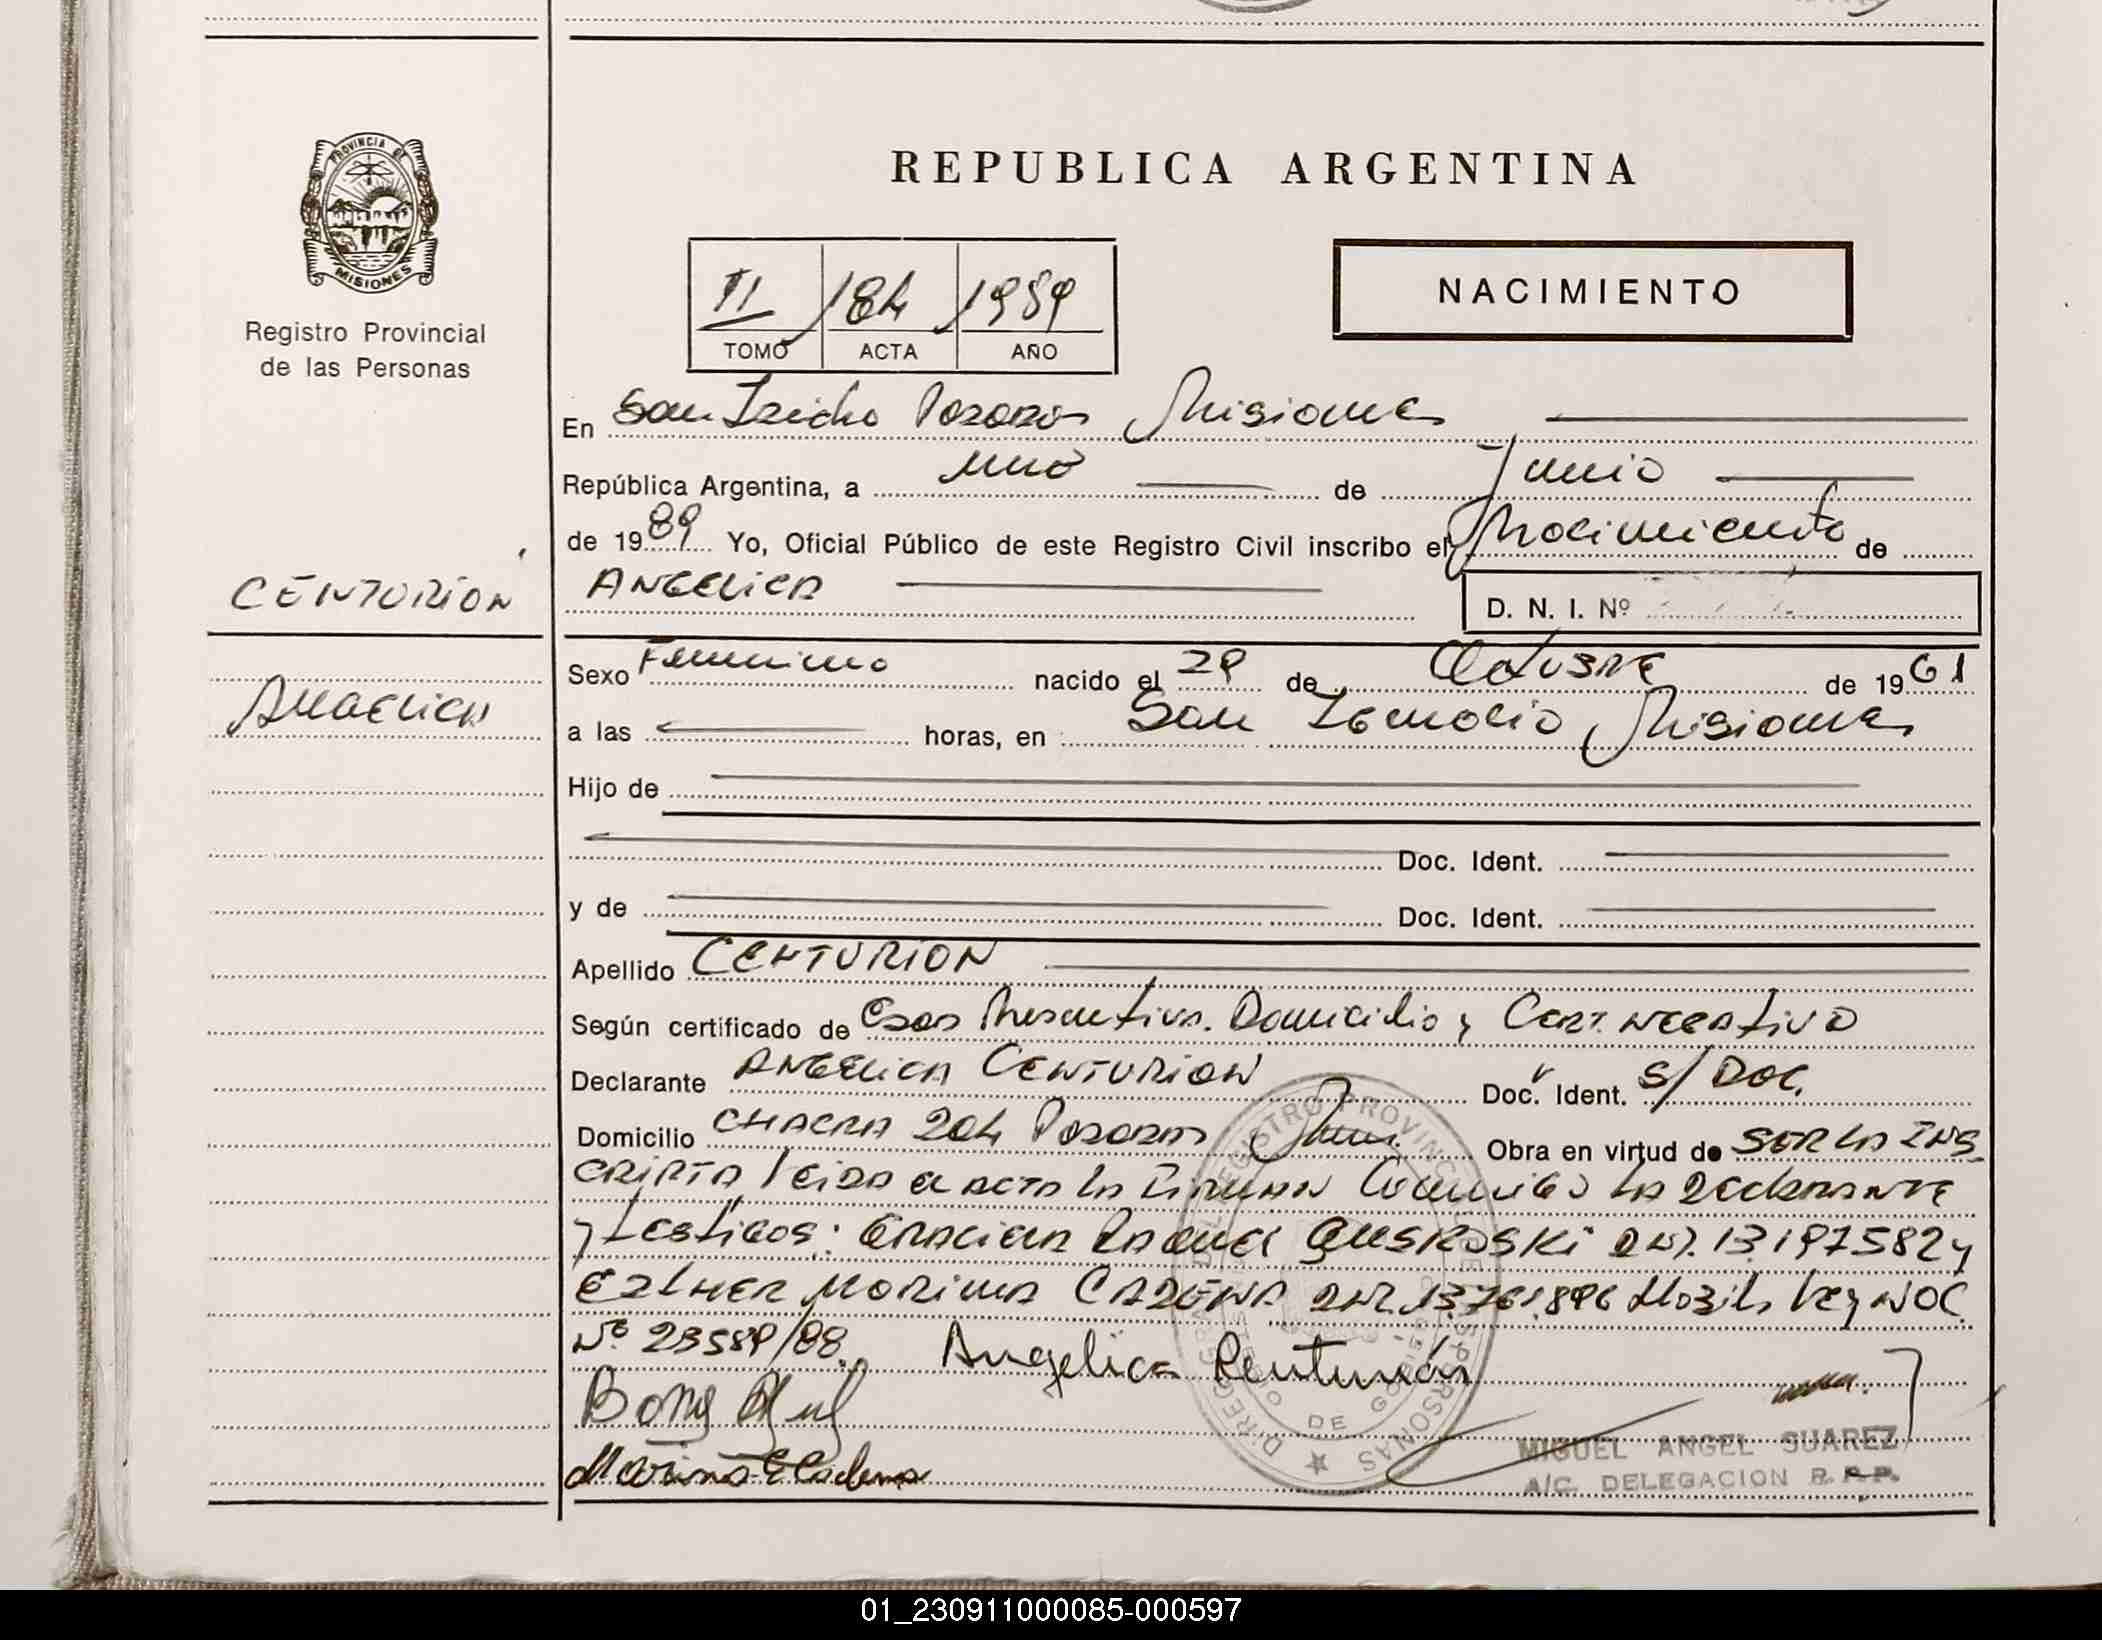 PROVINCIA DE
MISIONES
Registro Provincial
de las Personas
REPUBLICA ARGENTINA
NACIMIENTO
II / 184 / 1989
TOMO ACTA AÑO
En San Isidro Posadas Misiones
República Argentina, a uno de Junio
de 1989 Yo, Oficial Público de este Registro Civil inscribo el Nacimiento de
CENTURION
ANGELICA
D. N. I. Nº
ANGELICA
Sexo Femenino nacido el 29 de Octubre de 1961
a las horas, en San Ignacio Misiones
Hijo de
Doc. Ident.
y de Doc. Ident.
Apellido CENTURION
Según certificado de Edad Presuntiva. Domicilio y Cert. Negativo
Declarante ANGELICA CENTURION Doc. Ident. S/Doc.
Domicilio CHACRA 204 Posadas Obra en virtud de SER LA INS-
CRIPTA leida el acta la Firman Conmigo la declarante
y testigos: GRACIELA RAQUEL DNI. 13.197582 y
MARINA CADENA DNI. 13.761.896
Nº 23589/88.
Angelica Centurión
Marina E Cadena
MIGUEL ANGEL SUAREZ
A/C. DELEGACION R. P. P.
01_230911000085-000597